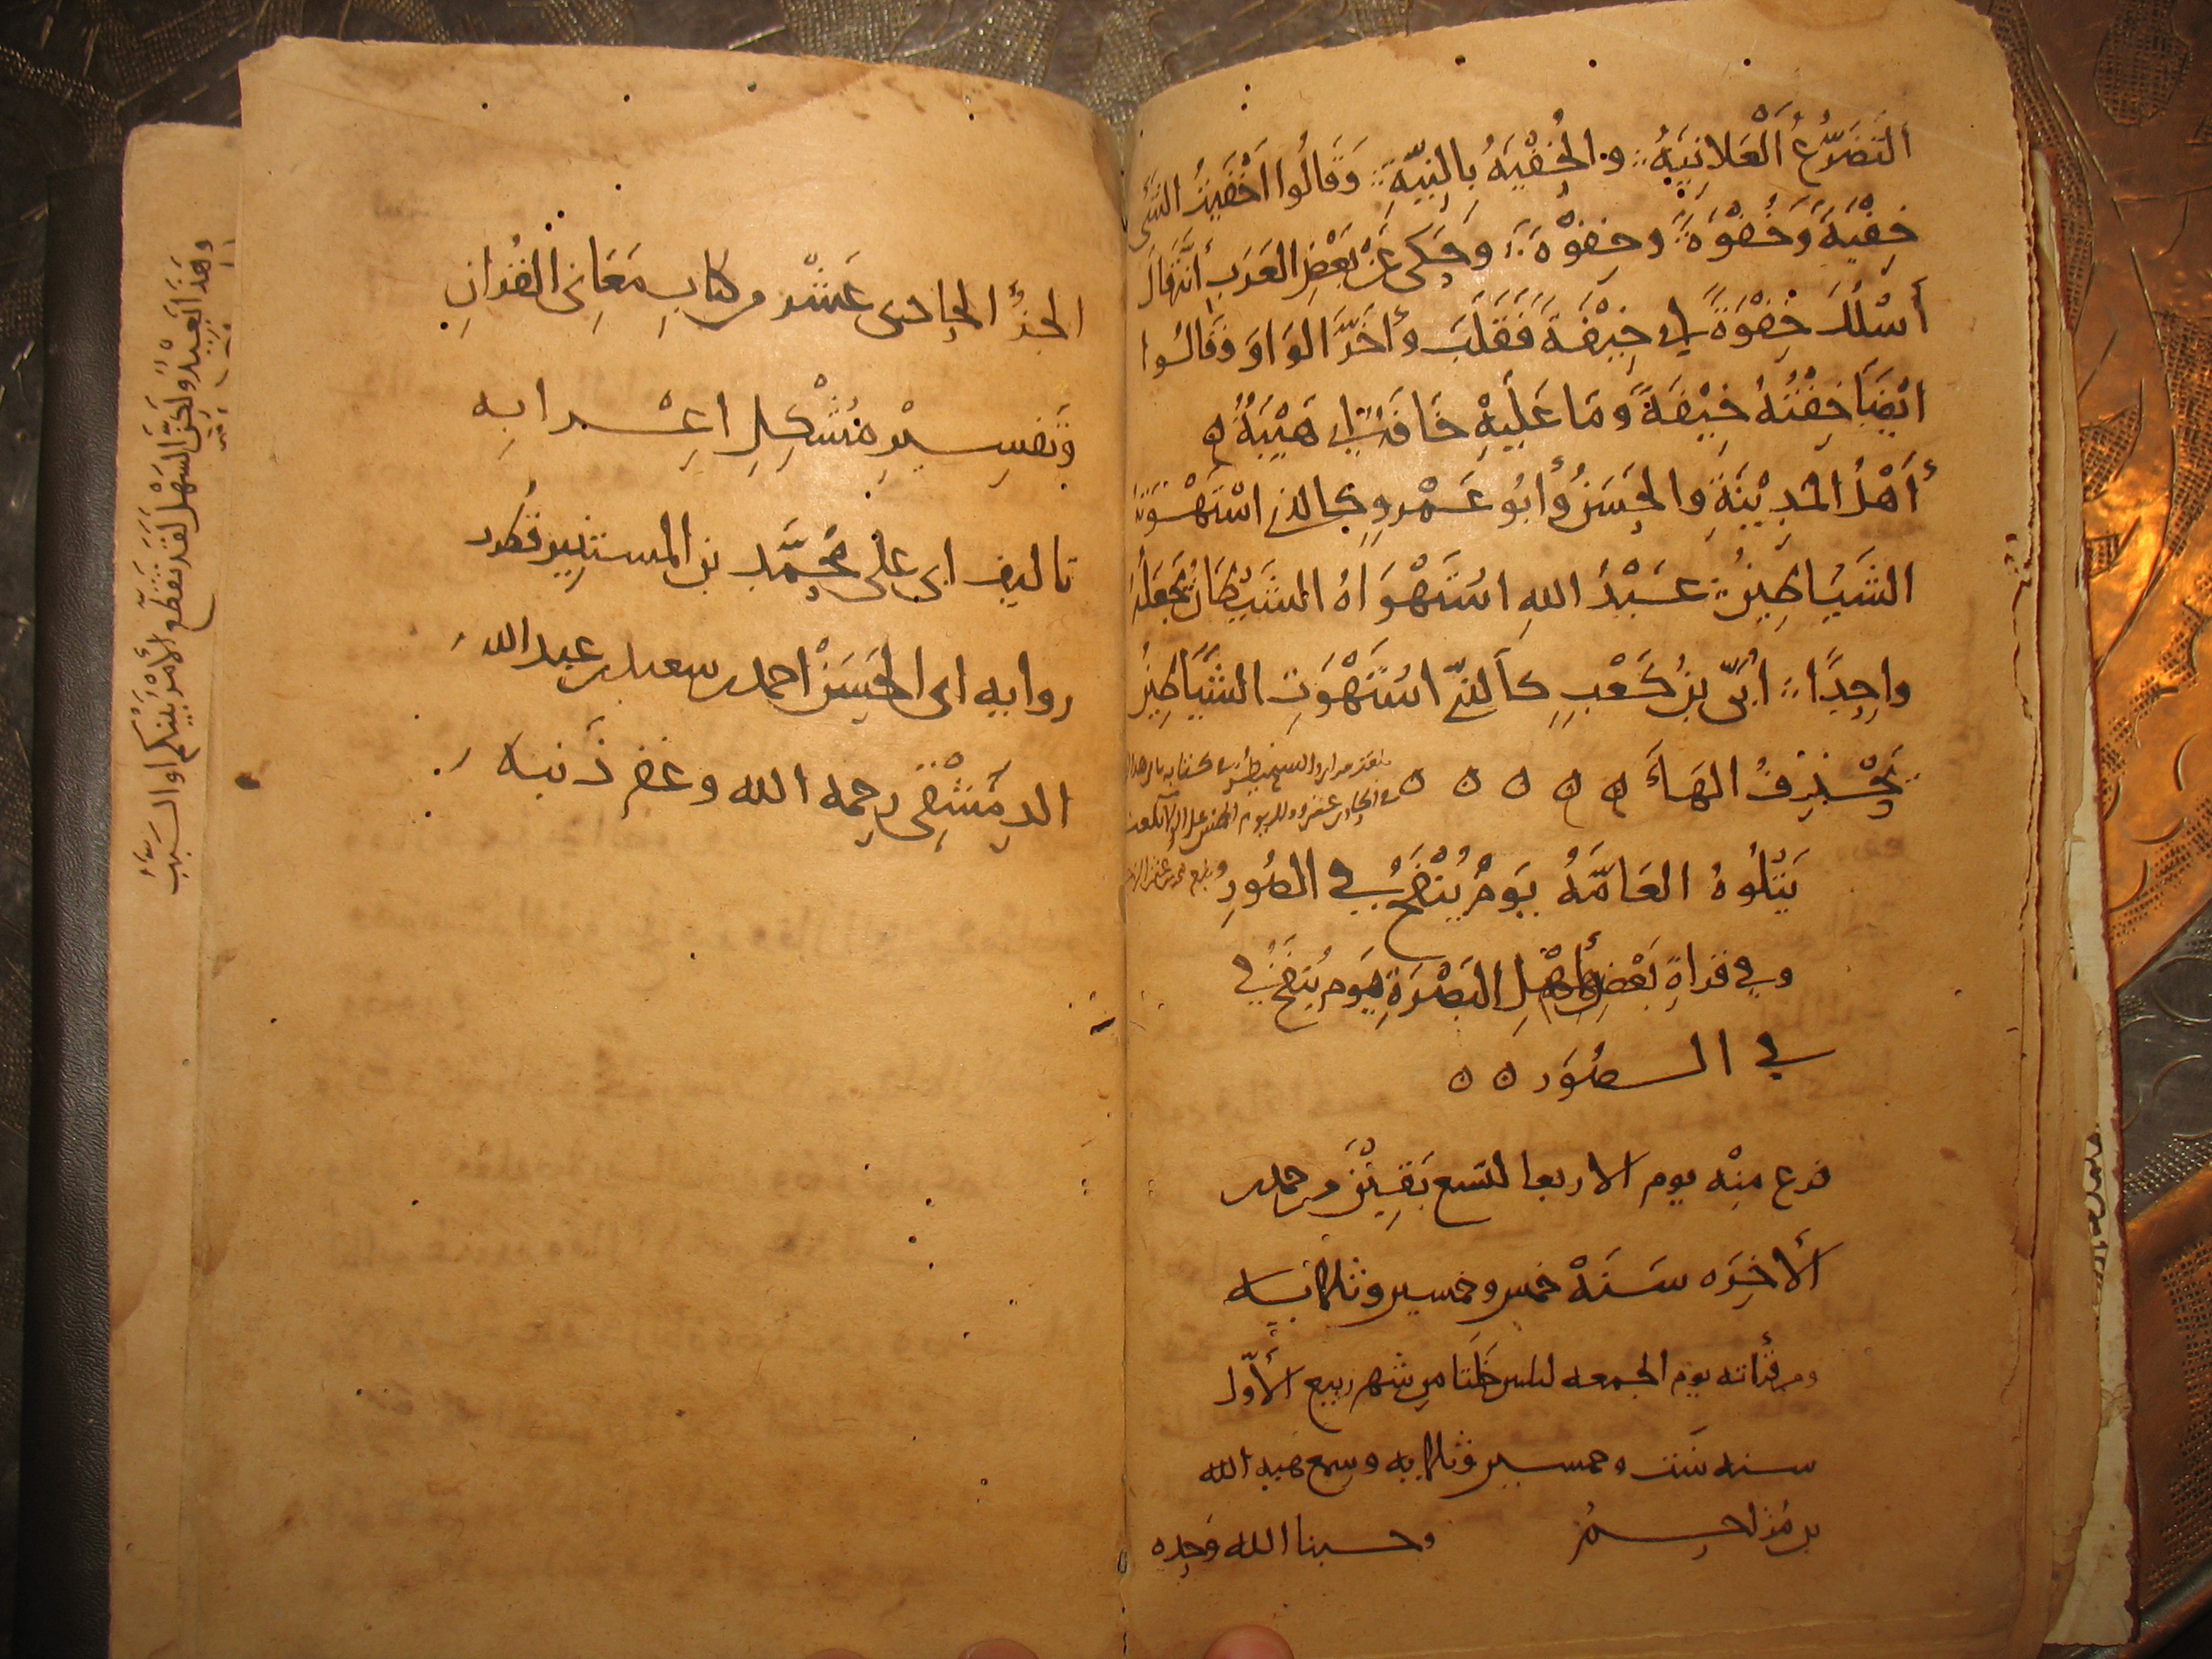 التَّضَرُّعُ الْعَلَانِيَةُ والخُفْيَةُ بِالنِيّةِ وَقَالُوا اَخْفَيْتُ الشَّى
خِفْيَةً وَخُفْوَةً وخِفْوْةً وَحُكى عَنْ بَعْضِ العَرَبِ أنَّهُ قَالَ
أَسْئَلُكَ خِفْوَةً اى خِيْفَةً فَقَلَبَ وأَخَّرَ الوَاوَ وَقَالُوا
ايْضًا خِفْتُهُ خِيْفَةً وَمَا عَلَيْهِ خَافَةٌ اى هَيْبَةٌ ه
أَهْلُ المَدِيْنَةِ والحَسَنُ وأَبُو عَمْرٍو كالذى اسْتَهْوَتْهُ
الشَّيَاطِيْنُ عَبْدُ اللهِ اسْتَهْوَاهُ الشَّيْطَانُ يَجْعَلُهُ
واحِدًا أُبَىّ بنُ كَعْبٍ كَالذى اسْتَهْوَتِ الشَّيَاطِيْنُ
يَحْذِفُ الهَاءَ ه ه ه ه ه ه
يَتْلُوهُ العَامَّةُ يَوْمَ يُنْفَخُ فى الصُّورِ
وفى قراةِ بَعْضِ أَهْلِ البَصْرَةِ يَومَ يُنفَخُ فى
فى الصُّوَر ه ه
فرغ مِنْه يوم الاربعا لتسع بَقِيْنَ من جمدى
الأَخِرَه سَنَةْ خمس وخمسين وثلثمايه
ومن قرأته يوم الجمعه خَلَتا من شهر ربيع الأوّل
سنه ست وخمسين وثلثمايه وسمع هبه الله
وحسبنا الله وحده
الجزُ الحادى عَشَر من كتابِ مَعَانى القُرانِ
وَتَفسِيْرِ مُشْكِلِ اعِْرابِهِ
تاليف ابى على مُحَمَّد بن المستنير قُطرب
روايه ابى الحَسَنْ احمد بن سعيد بن عبد الله
الدِمَشْقِى رحمه الله وغفر ذَنبه